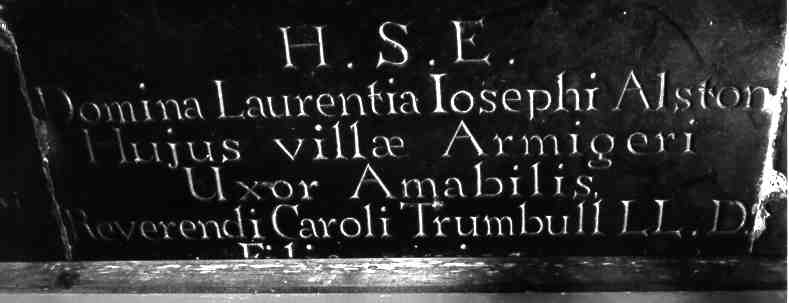 H. S. E.
Domina Laurentia Iosephi Alston
Hujus villæ Armigeri
Uxor Amabilis,
Reverendi Caroli Trumbull LL. D.